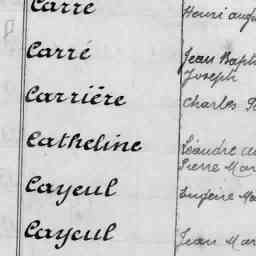 Carré Henri
Carré Jean
Joseph
Carrière Charles
Catheline Léandre
Pierre
Cayeul Eugène
Cayeul Jean